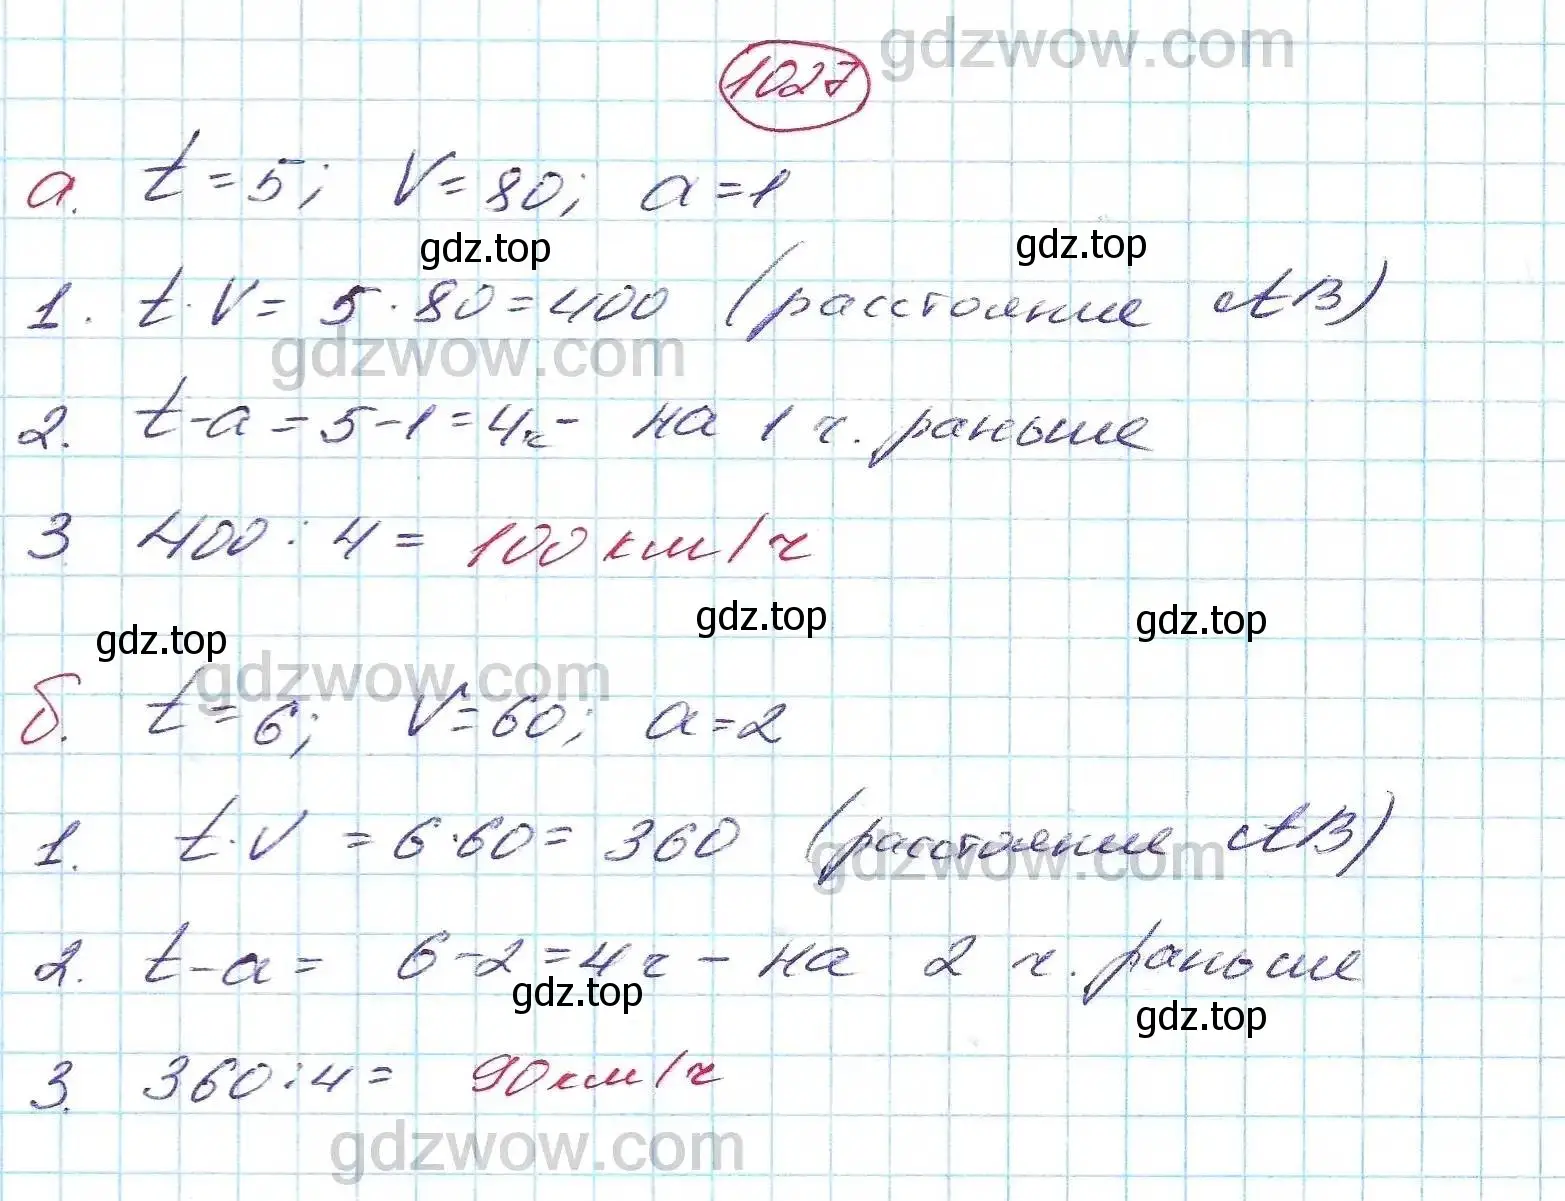 gdzwow.com
1027
а. t = 5; V = 80; a = 1
gdz.top gdz.top
1. t · V = 5 · 80 = 400 (расстояние AB)
gdzwow.com
2. t - a = 5 - 1 = 4ч - на 1 ч. раньше
3 400 : 4 = 100 км/ч
gdz.top gdz.top gdz.top
gdzwow.com
б. t = 6; V = 60; a = 2
1. t · V = 6 · 60 = 360 (расстояние AB)
gdzwow.com
2. t - a = 6 - 2 = 4 ч - на 2 ч. раньше
gdz.top gdz.top
3. 360 : 4 = 90 км/ч
gdzwow.com